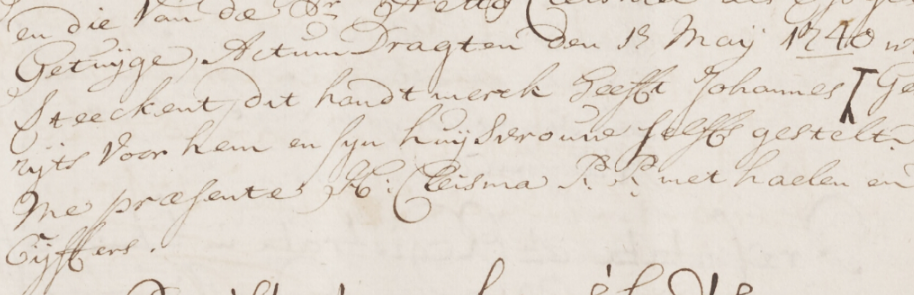 en die van de Sr. Hette Cleisma als
Getuijge, Actum Dragten den 18 Maij 1740
Steeckent, dit handt merck heefft Johannes Ge
rijts voor hem en syn huijsvrouwe selffs gestelt.
Me præsente, H: Cleisma P. P. met haelen en
Cijffers.